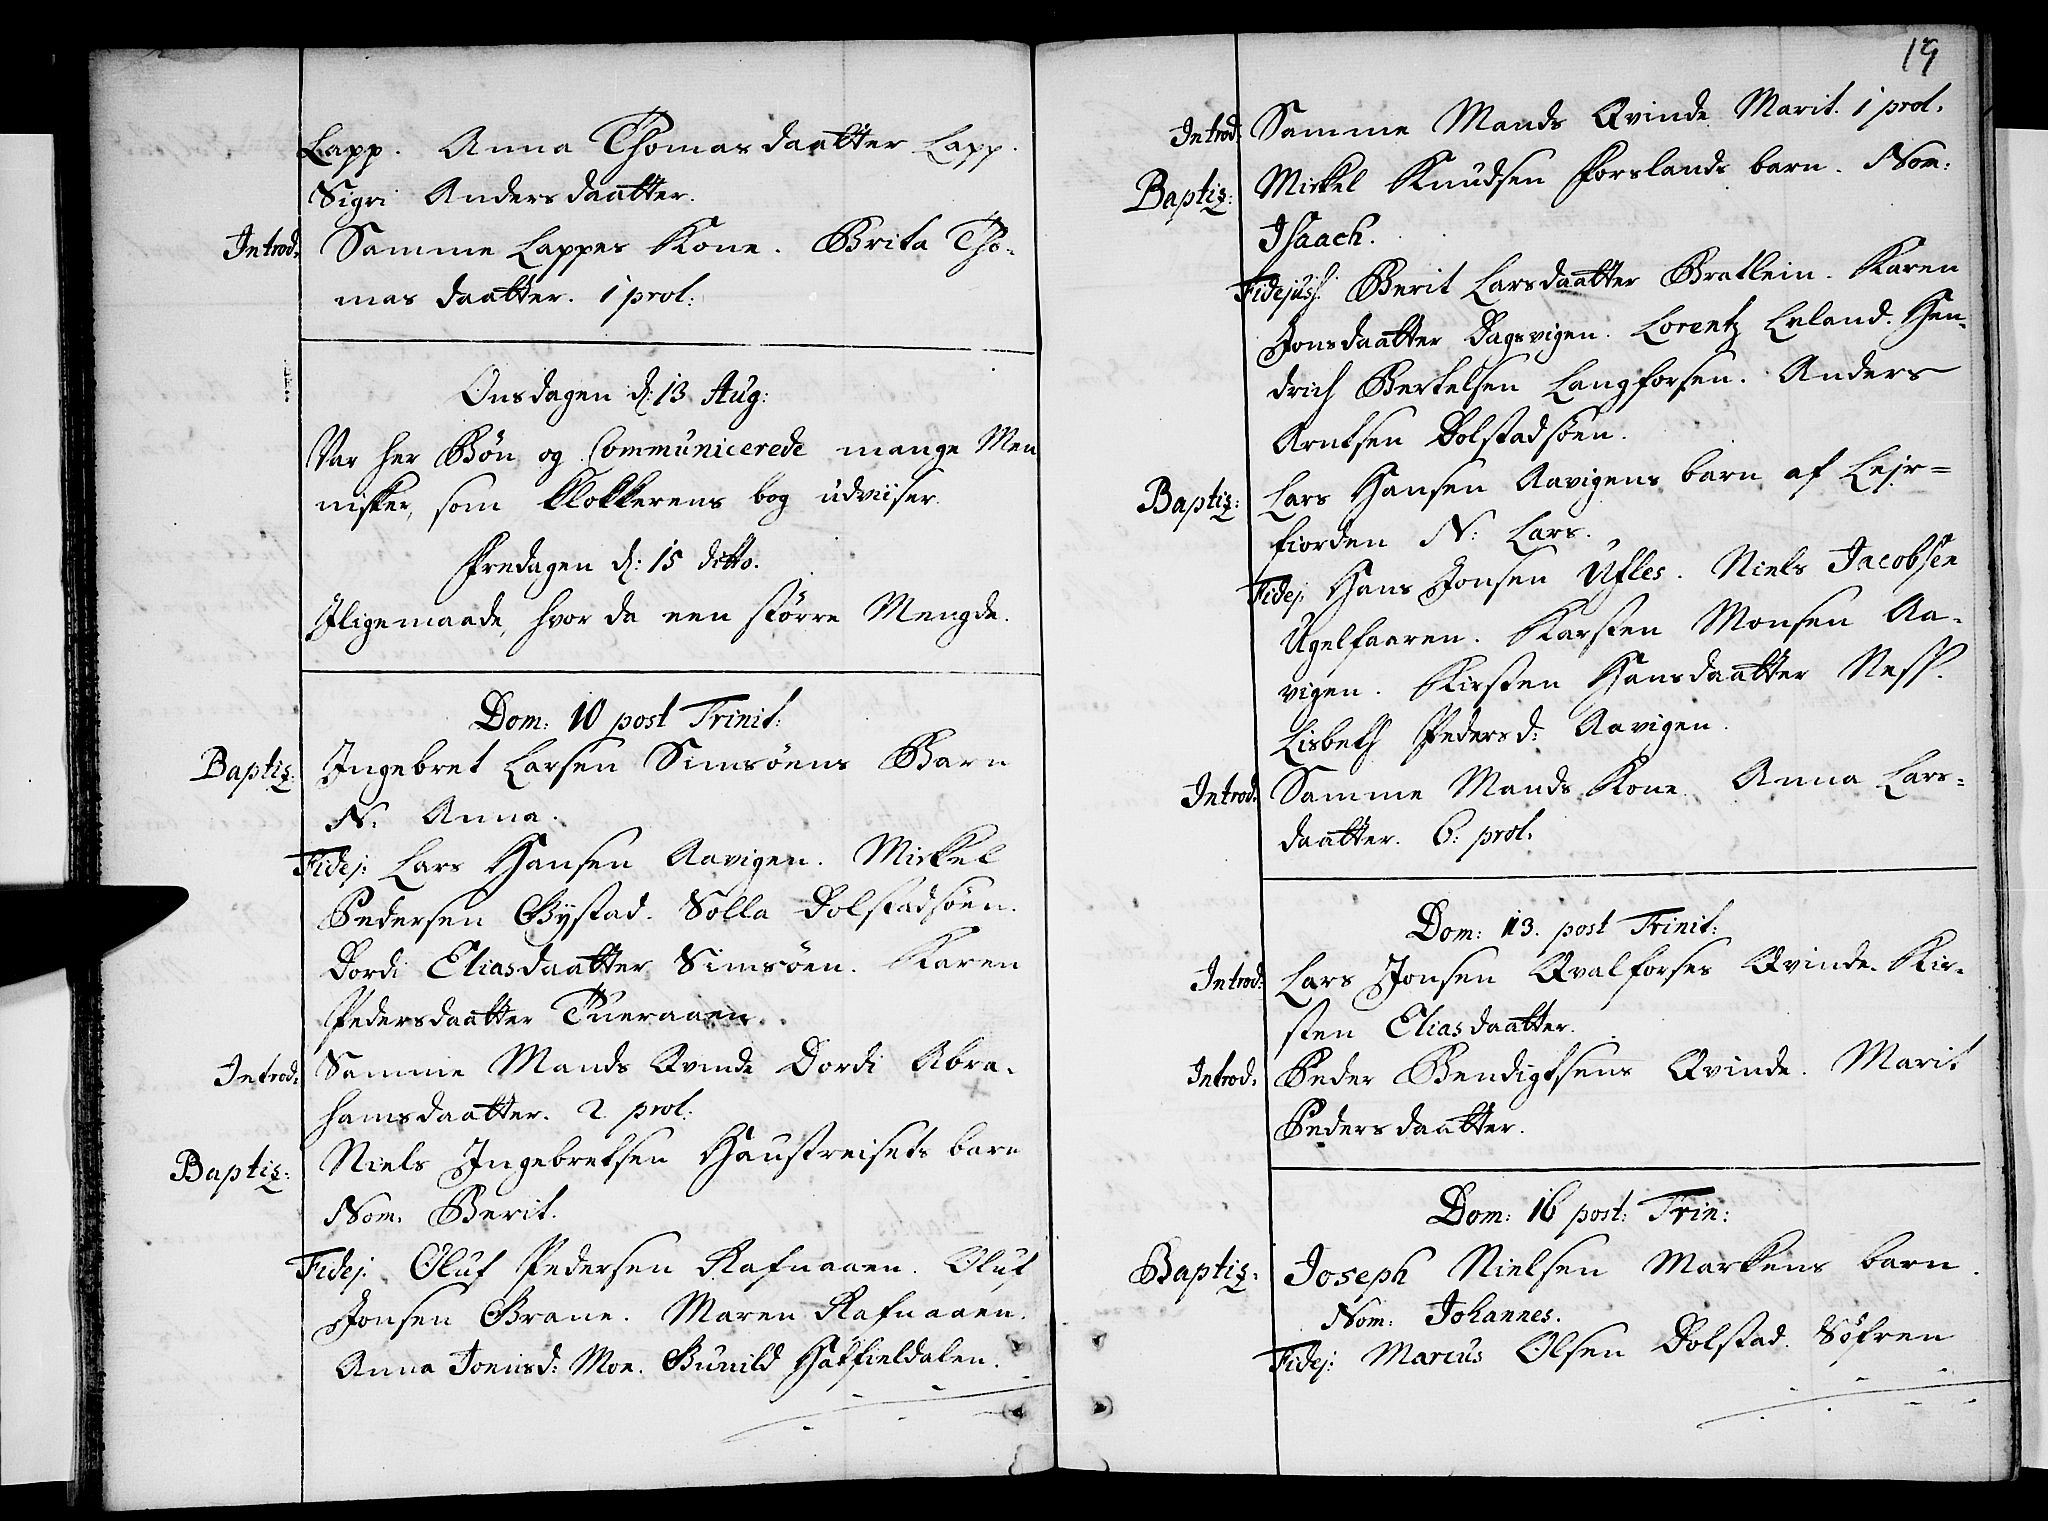 Lapp. Anna Thomasdaatter Lapp.
Sigri Andersdaatter.
Introd. Samme Lappes Kone. Brita Tho-
mas daatter. 1 prol:
Onsdagen d: 13 Aug:
Var her Bøn og Communicerede mange Men
nisker, som Klokkerens bog udviiser.
Fredagen d: 15 ditto.
Iligemaade, hvor da een større Mengde.
Dom: 10 post Trinit:
Baptiz: Ingebret Larsen Simsøens Barn
N. Anna.
Fidej: Lars Hansen Aavigen. Mickel
Pedersen Bystad. Solla Dolstadsøen.
Dordi Eliasdaatter Simsøen. Karen
Pedersdaatter Tueraaen.
Introd. Samme Mands Qvinde Dordi Abra-
hamsdaatter. 2 prol.
Baptiz: Niels Ingebretsen Haustreisets barn
Nom. Berit.
Fidej: Oluf Pedersen Rafnaaen. Oluf
Jonsen Brane. Maren Rafnaaen.
Anna Joensd: Moe. Gunild Hatfieldalen.
19
Introd: Samme Mands Qvinde Marit. 1 prol.
Baptiz: Mickel Knudsen Forslands barn. Nom:
Isaach.
Fidejuss: Berit Larsdaatter Bratlein. Karen
Jonsdaatter Dagsvigen. Lorentz Erland. Hen-
drich Bertelsen Langforsen. Anders
Arntsen Dolstadsøen.
Baptiz: Lars Hansen Aavigens barn af Leir=
fiorden N: Lars.
Fidej. Hans Jonsen Ufles. Niels Jacobsen
Ugelfaaren. Karsten Monsen Aa-
vigen. Kirsten Hansdaatter Ness.
Lisbeth Pedersd: Aavigen.
Introd: Samme Mands Kone Anna Lars-
daatter. 6: prol.
Dom: 13. post Trinit:
Introd: Lars Jonsen Qvalforses Qvinde. Kir-
sten Eliasdaatter.
Introd. Peder Bendigtsens Qvinde. Marit
Pedersdaatter.
Dom: 16 post: Trin:
Baptiz: Joseph Nielsen Markens barn.
Nom: Johannes.
Fidej: Marcus Olsen Dolstad. Søfren